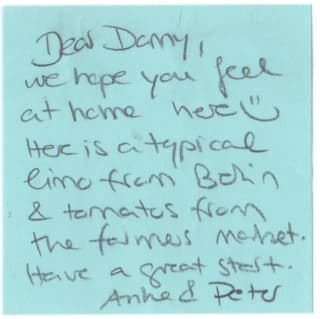 Dear Danny,
we hope you feel
at home here
Here is a typical
limo from Berlin
& tomatos from
the farmers market.
Have a great start.
Anke & Peter